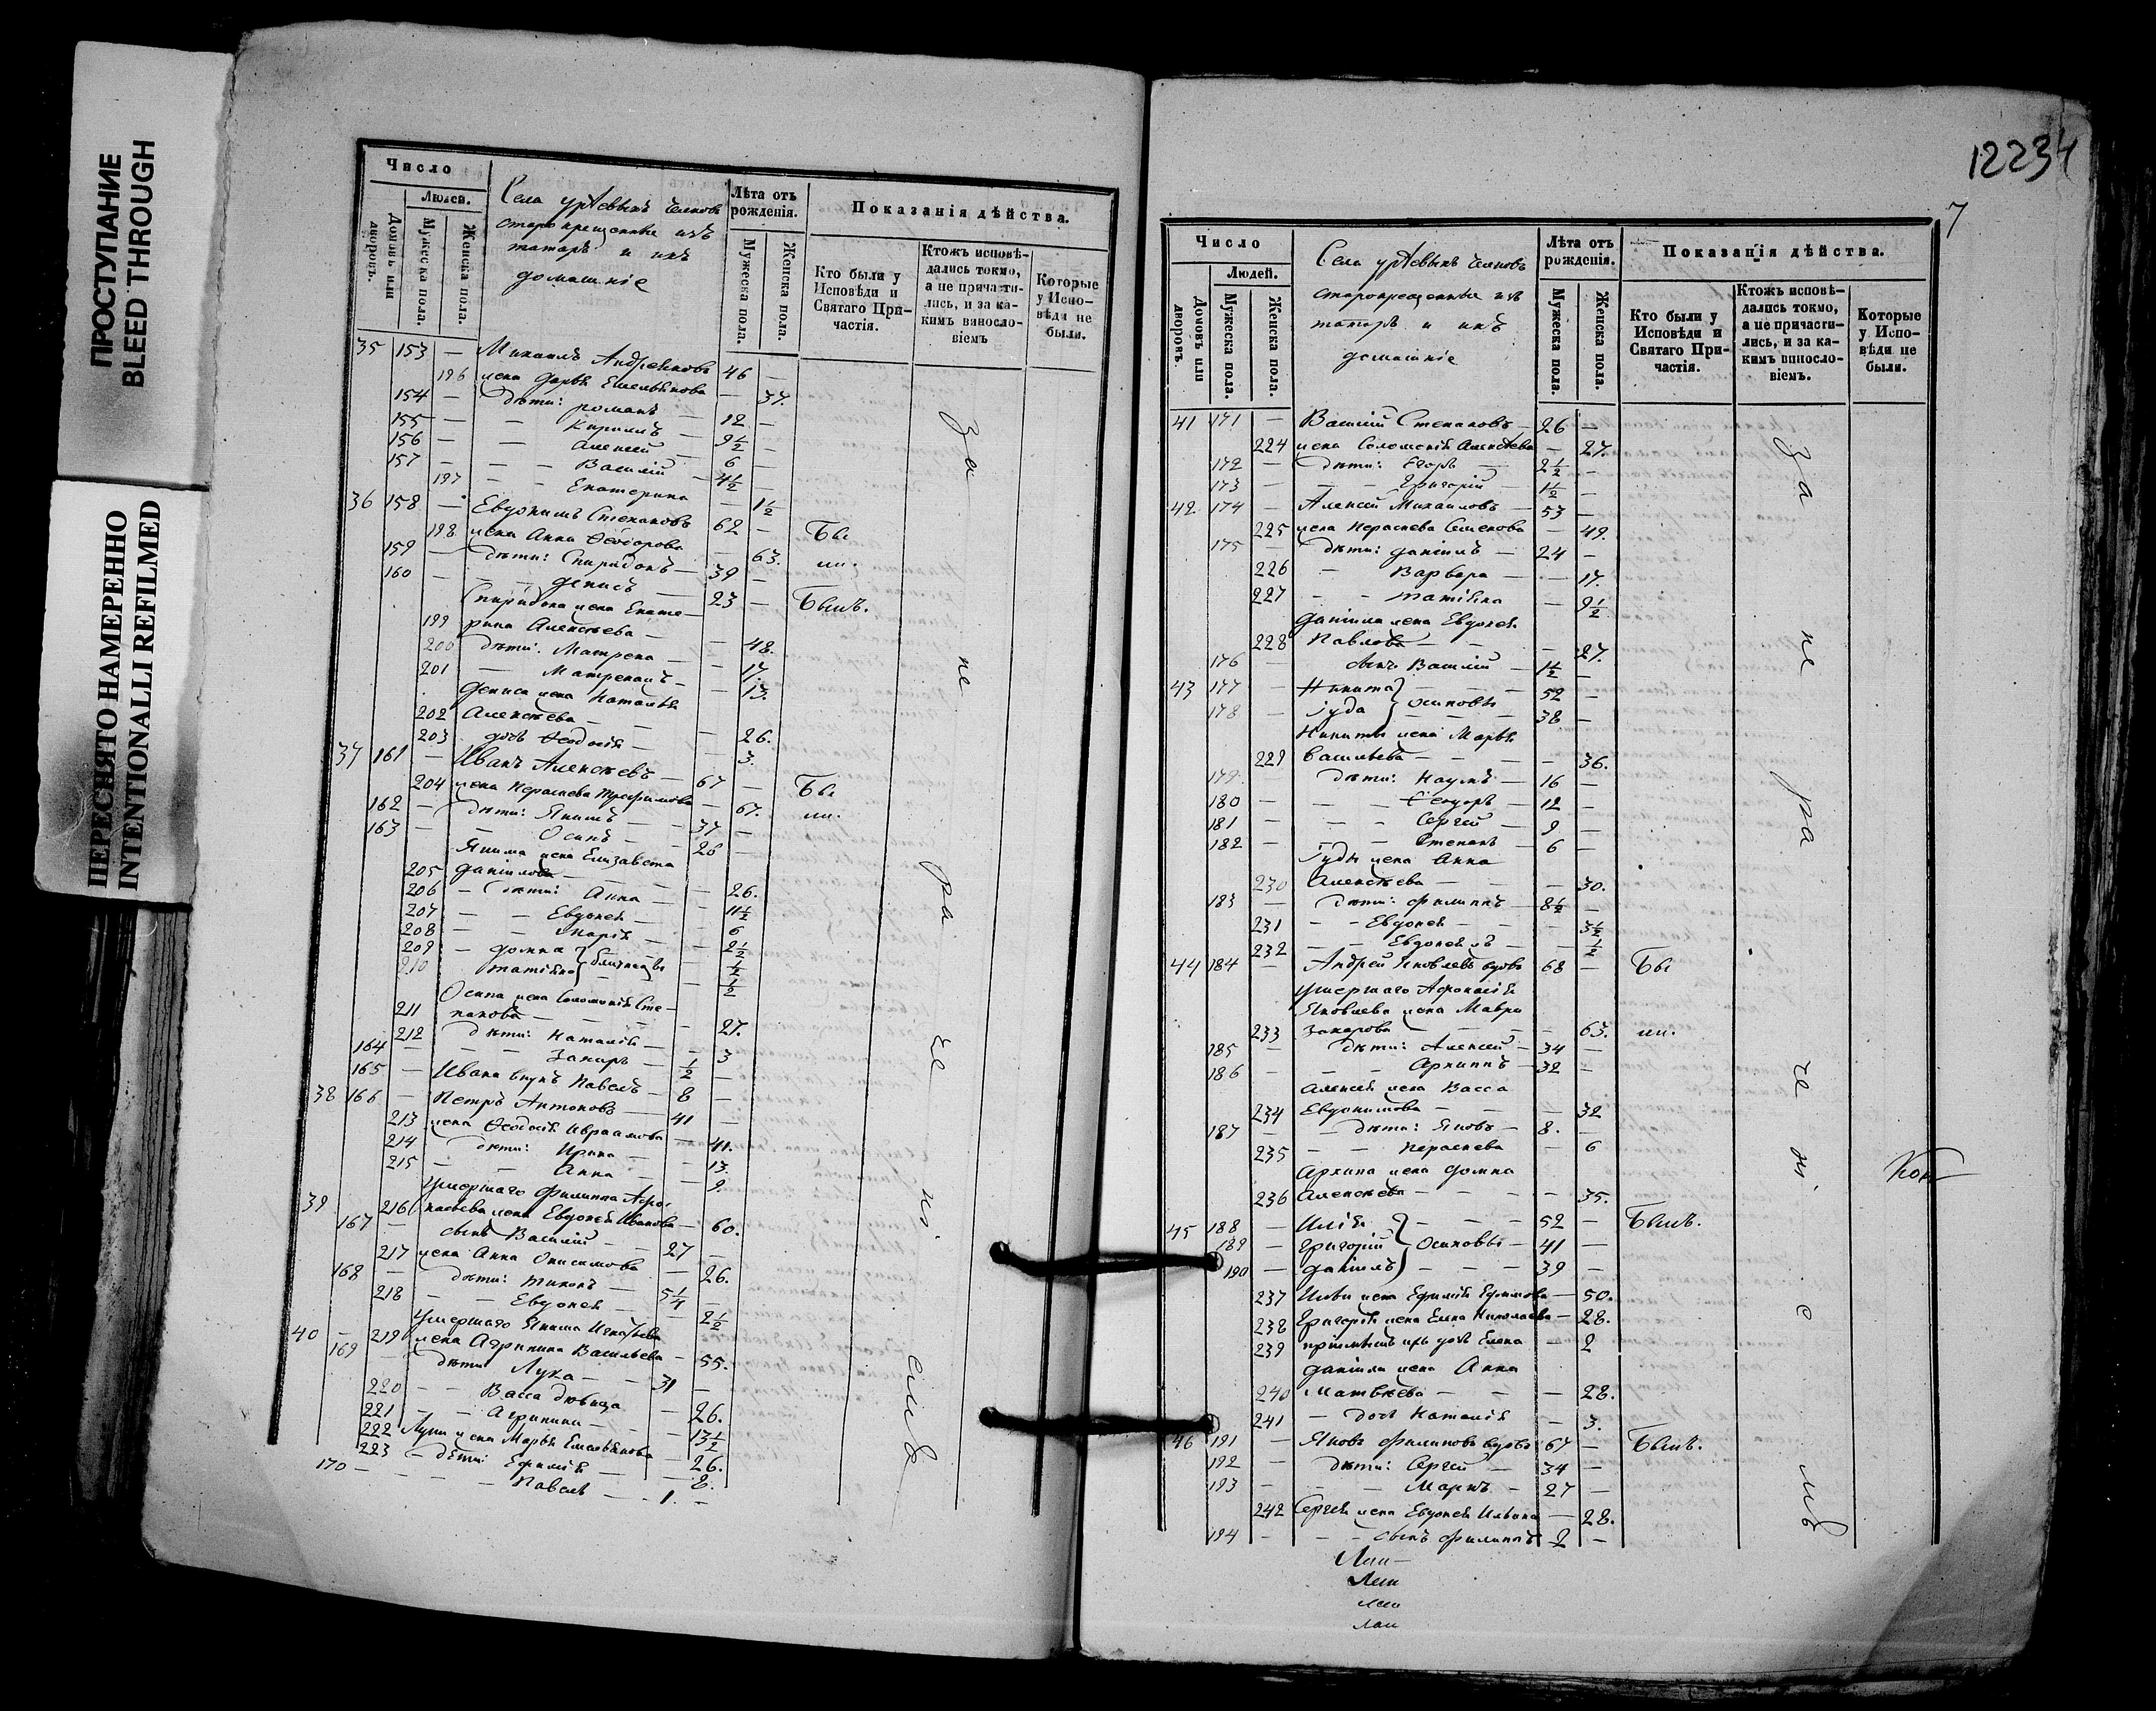 ПРОСТУПАНИЕ
BLEED THROUGH
ПЕРЕСНЯТО НАМЕРЕННО
INTENTIONALLI REFILMED
Число
Людей.
Домовъ или дворовъ.
Мужеска пола.
Женска пола.
Села
старокрещенные изъ
татаръ и ихъ
домашніе
Лѣта отъ рожденія.
Мужеска пола.
Женска пола.
Показанія дѣйства.
Кто были у Исповѣди и Святаго Причастія.
Ктожъ исповѣдались токмо, а не причастились, и за какимъ винословіемъ
Которые у Исповѣди не были.
35 153 — Михаилъ Андреяновъ 46 —
196 жена Дарья Емельянова — 37.
154 — дѣти: Романъ — 12 —
155 — — Кирилъ — 9½ —
156 — — Алексей — 6 —
157 — — — Василій — 4½ —
197 — — Екатерина — 1½
36 158 — Евдокимъ Степановъ 62 — Бы
198 жена Анна Ѳеодорова — 63. ли.
159 — дѣти: Спиридонъ — 39 —
160 — — — Денисъ — 23 — Былъ.
Спиридона жена Екате-
199 рина Алексѣева — — 48.
200 дѣти: Матрена — — 17.
201 — Матрена — — 13.
Дениса жена Наталья
202 Алексѣева — — — 26.
203 дочь Ѳеодосія — — 3.
37 161 — Иванъ Алексѣевъ — 67 — Бы
204 жена Параскева Трофимова — 67. ли.
162 — дѣти: Якимъ — 37 —
163 — — Осипъ — 26 —
Якима жена Елизавета
205 Даніилова — — 26.
206 — дѣти: Анна — — 11½
207 — — Евдокія — — 6
208 — — Марія — — 2½
209 — Домна } близнецы — ½
210 Татіяна — ½
Осипа жена Соломонія Сте-
211 панова — — — 27.
212 дѣти: Наталія — — 3
164 — — — Захаръ — ½ —
165 — Ивана внукъ Павелъ — 8 —
38 166 — Петръ Антоновъ — 41 —
213 жена Ѳеодосія Авраамова — 41.
214 дѣти: Ирина — — 13.
215 — — Анна — — 9.
умершаго Филиппа Афо-
39 216 насьева жена Евдокія Иванова — 60.
167 — сынъ Василій — 27 —
217 жена Анна Онисимова — 26.
168 — дѣти: Тихонъ — 5¼ —
218 — — Евдокія — — 2½
умершаго Якима Игнатьева
40 — 219 жена Агрипина Васильева — 55.
169 дѣти: Лука — — 31 —
220 — — Васса дѣвица — 26.
221 — — Агрипина — — 13½
222 Луки жена Марья Емельянова — 26.
223 — дѣти: Ефимія — — 2.
170 — — — — Павелъ — 1. —
За не ра че ні. емъ
12234
7
Число
Людей.
Домовъ или дворовъ.
Мужеска пола.
Женска пола.
Села
старокрещенные изъ
татаръ и ихъ
домашніе
Лѣта отъ рожденія.
Мужеска пола.
Женска пола.
Показанія дѣйства.
Кто были у Исповѣди и Святаго Причастія.
Ктожъ исповѣдались токмо, а не причастились, и за какимъ винословіемъ.
Которые у Исповѣди не были.
41 171 — Василій Степановъ — 26 —
224 жена Соломонія Алексѣева — 27.
172 — дѣти: Егоръ — 2½ —
173 — — — Григорій — 1½ —
42 174 — Алексей Михаиловъ — 53 —
225 жена Параскева Семенова — 49.
175 — дѣти: Даніилъ — 24 —
226 — Варвара — — 17.
227 — — Татіяна — 9½
Даніила жена Евдокія
228 Павлова — — — 27.
176 — сынъ Василій — 1½ —
43 177 — Никита } — — 52 —
178 — Іуда } Осиповы — 38 —
Никиты жена Марья
229 Васильева — — — 36.
179 дѣти: Наумъ — 16 —
180 — — — Ѳеодоръ — 12 —
181 — — — Сергей — 9 —
182 — — — Степанъ — 6 —
Іуды жена Анна
230 Алексѣева — — — 30.
183 — дѣти: Филиппъ — 8½ —
231 — — Евдокія — — 3½
232 — — Евдокія — — ½
44 184 — Андрей Яковлевъ вдовъ 68 — Бы
умершаго Афонасія
Яковлева жена Мавра
233 Захарова — — — 63. ли.
185 — дѣти: Алексей — 34 —
186 — — — Архиппъ — 32 —
Алексея жена Васса
234 Евдокимова — — — 32
187 — — дѣти: Яковъ — 8. —
235 — — Параскева — 6
Архипа жена Домна
236 Алексѣева — — — 35.
45 188 — Илія } — — — 52 — Былъ.
189 — Григорій } Осиповы — 41 —
190 — Даніилъ } — — — 39 —
237 Ильи жена Ефимія Ефимова — 50.
238 Григорія жена Елена Николаева — 28.
239 дочь Елена — 2
Даніила жена Анна
240 Матвѣева — — — 28.
241 — дочь Наталія — 3.
46 191 — Яковъ Филиповъ вдовъ 67 — Былъ.
192 — дѣти: Сергей — 34 —
193 — — — Маркъ — 27 —
242 Сергея жена Евдокія — 28.
194 — — — сынъ Филиппъ 2 —
За не ра че ні. е мъ